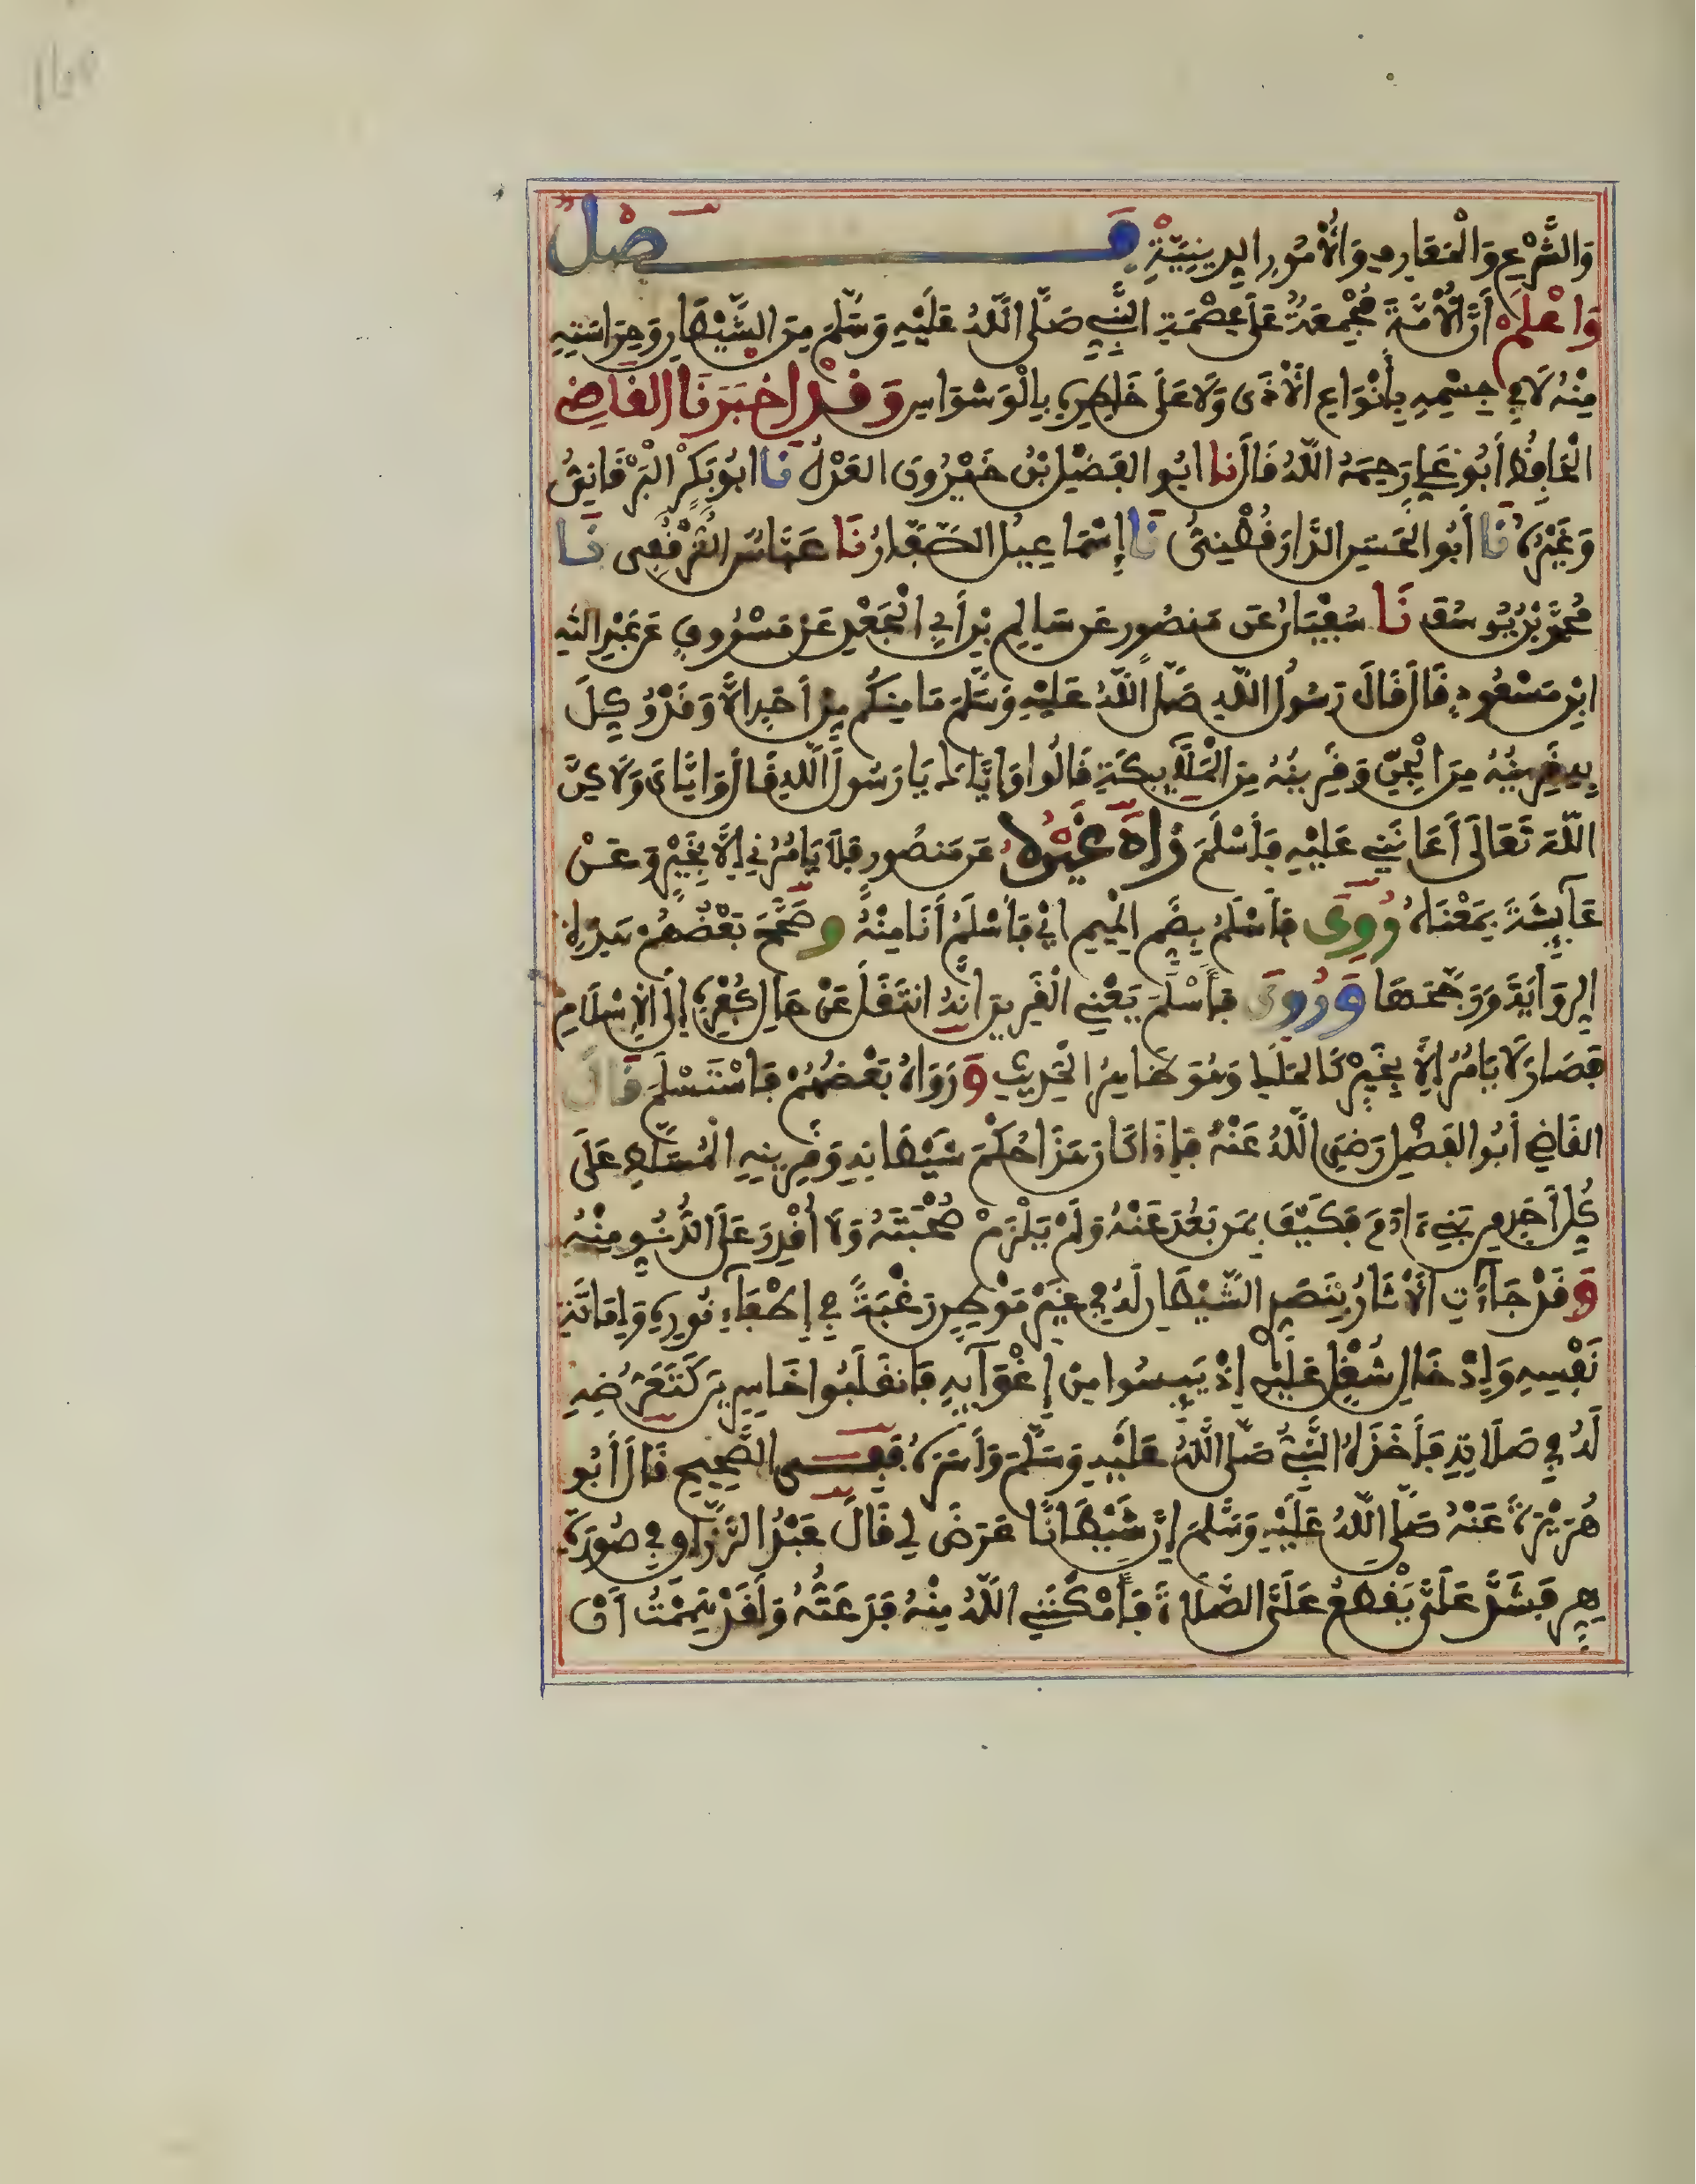 وَالشَّرْعِ وَالْمَعَارِفِ وَالْأُمُورِ الدِّينِيَّةِ فَصْلٌ
وَاعْلَمْ أَنَّ الْأُمَّةَ مُجْمِعَةٌ عَلَى عِصْمَةِ النَّبِيِّ صَلَّى اللَّهُ عَلَيْهِ وَسَلَّمَ مِنَ الشَّيْطَانِ وَحِرَاسَتِهِ
مِنْهُ لَا فِي جِسْمِهِ بِأَنْوَاعِ الْأَذَى وَلَا عَلَى خَاطِرِهِ بِالْوَسْوَاسِ وَقَدْ اخْبَرَنَا الْقَاضِي
الْحَافِظُ أَبُو عَلِيٍّ رَحِمَهُ اللَّهُ قَالَ نا ابُو الْفَضْلِ بْنُ خَيْرُونَ الْعَدْلُ نَا ابُو بَكْرٍ الْبَرْقَانِيُّ
وَغَيْرُهُ نَا أَبُو الْحَسَنِ الدَّارَقُطْنِيُّ نَا إِسْمَاعِيلُ الصَّفَّارُ نَا عَبَّاسُ التَّرْقُفِي نَا
مُحَمَّدُ بْنُ يُوسُفَ نَا سُفْيَانُ عَنْ مَنْصُورٍ عَنْ سَالِمِ بْنِ أَبِي الْجَعْدِ عَنْ مَسْرُوقٍ عَنْ عَبْدِ اللَّهِ
ابْنِ مَسْعُودٍ قَالَ قَالَ رَسُولُ اللَّهِ صَلَّى اللَّهُ عَلَيْهِ وَسَلَّمَ مَا مِنْكُمْ مِنْ أَحَدٍ إِلَّا وَقَدْ وُكِّلَ
بِهِ قَرِينُهُ مِنَ الْجِنِّ وَقَرِينُهُ مِنَ الْمَلَائِكَةِ قَالُوا وَإِيَّاكَ يَا رَسُولَ اللَّهِ قَالَ وَإِيَّايَ وَلَاكِنَّ
اللَّهَ تَعَالَى أَعَانَنِي عَلَيْهِ فَأَسْلَمَ زَادَ غَيْرُهُ عَنْ مَنْصُورٍ فَلَا يَامُرُنِي إِلَّا بِخَيْرٍ وَعَنْ
عَائِشَةَ بِمَعْنَاهُ رُوِيَ فَأَسْلَمُ بِضَمِّ الْمِيمِ ايْ فَأَسْلَمُ أَنَا مِنْهُ وَصَحَّحَ بَعْضُهُمْ هَذِهِ
الرِّوَايَةَ وَرَجَّحَهَا وَرُوِيَ فَأَسْلَمَ يَعْنِي الْقَرِينَ أَنَّهُ انْتَقَلَ عَنْ حَالِ كُفْرِهِ إِلَى الْإِسْلَامِ
فَصَارَ لَا يَامُرُ إِلَّا بِخَيْرٍ كَالْمَلَكِ وَهُوَ ظَاهِرُ الْحَدِيثِ وَرَوَاهُ بَعْضُهُمْ فَاسْتَسْلَمَ قَالَ
الْقَاضِي أَبُو الْفَضْلِ رَضِيَ اللَّهُ عَنْهُ فَإِذَا كَانَ هَذَا حُكْمَ شَيْطَانِهِ وَقَرِينِهِ الْمُسَلَّطِ عَلَى
كُلِّ أَحَدٍ مِنْ بَنِي ءَادَمَ فَكَيْفَ بِمَنْ بَعُدَ عَنْهُ وَلَمْ يَلْزَمْ صُحْبَتَهُ وَلَا أُقْدِرَ عَلَى الدُّنُوِّ مِنْهُ
وَقَدْ جَاءَتِ الْآثَارُ بِتَصَدِّي الشَّيْطَانِ لَهُ فِي غَيْرِ مَوْطِنٍ رَغْبَةً فِي إِطْفَاءِ نُورِهِ وَإِمَاتَةِ
نَفْسِهِ وَإِدْخَالِ شُغْلٍ عَلَيْهِ إِذْ يَيِسُوا مِنْ إِغْوَائِهِ فَانْقَلَبُوا خَاسِرِينَ كَتَعَرُّضِهِ
لَهُ فِي صَلَاتِهِ فَأَخَذَهُ النَّبِيُّ صَلَّى اللَّهُ عَلَيْهِ وَسَلَّمَ وَأَسَرَهُ فَفِي الصَّحِيحِ قَالَ أَبُو
هُرَيْرَةَ عَنْهُ صَلَّى اللَّهُ عَلَيْهِ وَسَلَّمَ إِنَّ شَيْطَانًا عَرَضَ لِي قَالَ عَبْدُ الرَّزَّاقِ فِي صُورَةِ
هِرٍّ فَشَدَّ عَلَيَّ يَقْطَعُ عَلَيَّ الصَّلَاةَ فَأَمْكَنَنِي اللَّهُ مِنْهُ فَذَعَتُّهُ وَلَقَدْ هَمَمْتُ أَنْ